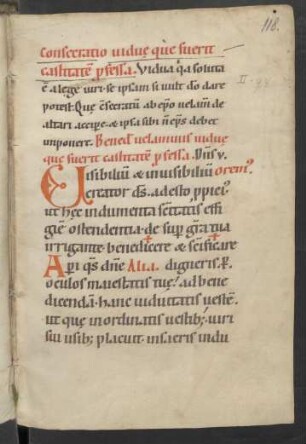 118.
Consecratio uiduę quę fuerit
castitatē p̄fessa. Vidua q̇a soluta
ē a lege uiri. se ipsam si uult dō dare
potest. Quę c̄secratū ab ep̄o uelam̄ de
altari accipe & ipsa sibi n̄ ep̄s debet
imponere. Bened̄ uelaminis uiduę
que fuerit castitatē p̄fessa. Dn̄s v.
Visibiliū & inuisibiliū oremꝰ.
creator ds̄. adesto ppicꝰ.
ut hęc indumenta sc̄itatis effi
giem ostendentia. de sup̄ grā tua
irrigante. bene✝dicere & sc̄ificare
Per qs̄ dn̄e Alia. digneris. P.
oculos maiestatis tuę. ad bene
dicendā hanc uiduitatis uestē.
ut quę inordinatis uestibꝰ. uiri
sui usibꝰ placuit. in sacris indu